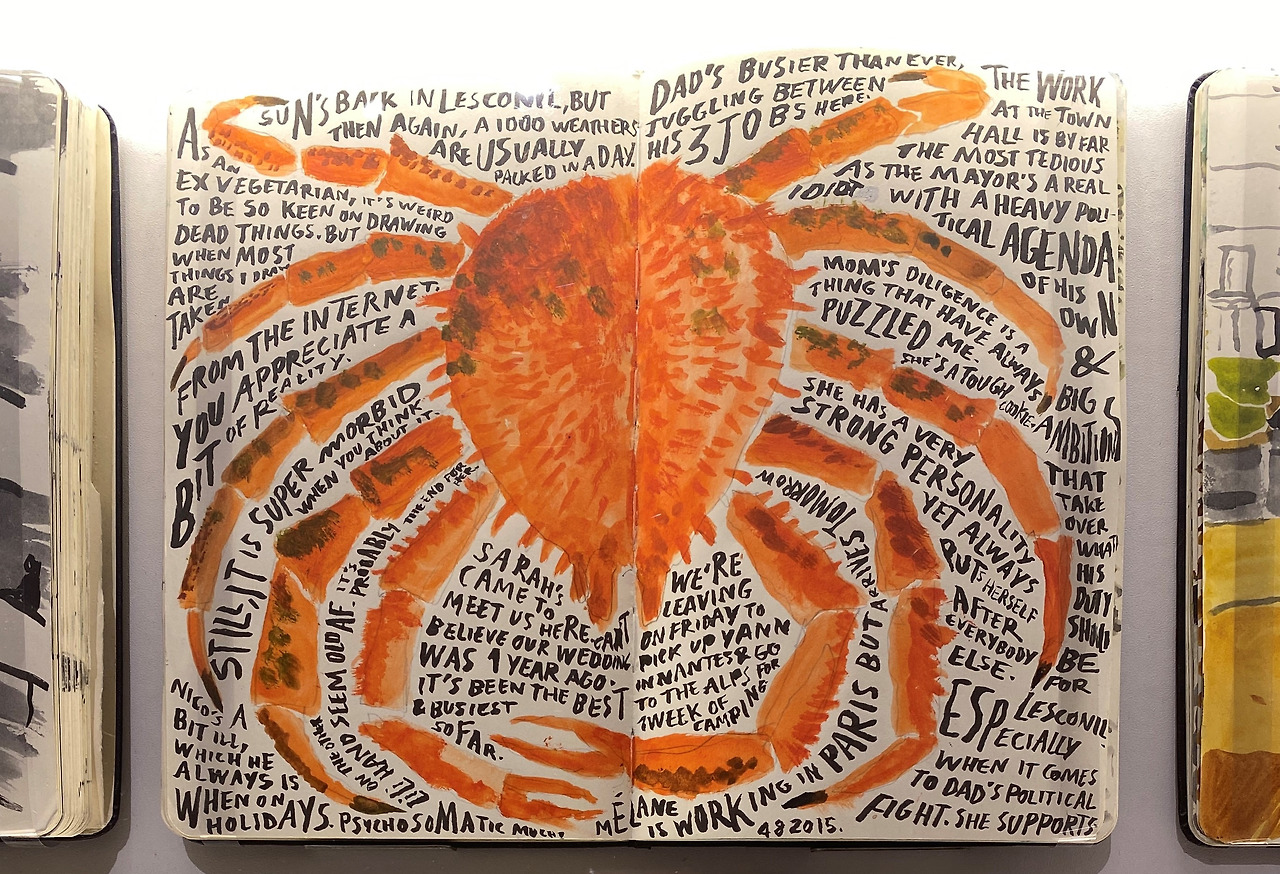 SUN'S BACK IN LESCONIL, BUT
THEN AGAIN, A 1000 WEATHERS
ARE USUALLY
PACKED IN A DAY.
AS AN
EX VEGETARIAN, IT'S WEIRD
TO BE SO KEEN ON DRAWING
DEAD THINGS. BUT DRAWING
WHEN MOST
THINGS I DRAW
ARE
TAKEN
FROM THE INTERNET.
YOU APPRECIATE A
BIT OF REALITY.
STILL, IT IS SUPER MORBID
WHEN YOU THINK
ABOUT IT.
NICO'S A
BIT ILL,
WHICH HE
ALWAYS IS
WHEN ON
HOLIDAYS. PSYCHOSOMATIC MUCH?
ILL! HAND
ON THE OTHER
SEEM OLD AF. IT'S
PROBABLY THE END FOR
HER.
SARAH'S
CAME TO
MEET US HERE. CAN'T
BELIEVE OUR WEDDING
WAS 1 YEAR AGO.
IT'S BEEN THE BEST
& BUSIEST
SO FAR.
DAD'S BUSIER THAN EVER,
JUGGLING BETWEEN
HIS 3 JOBS HERE.
THE WORK
AT THE TOWN
HALL IS BY FAR
THE MOST TEDIOUS
AS THE MAYOR'S A REAL
IDIOT WITH A HEAVY POLI-
TICAL AGENDA
OF HIS
OWN
&
BIG
AMBITIONS
THAT
TAKE
OVER
WHAT
HIS
DUTY
SHOULD
BE
FOR
LESCONIL.
MOM'S DILIGENCE IS A
THING THAT HAVE ALWAYS
PUZZLED ME.
SHE'S A TOUGH COOKIE.
SHE HAS A VERY
STRONG PERSONALITY
YET ALWAYS
PUTS HERSELF
AFTER
EVERYBODY
ELSE.
ESPECIALLY
WHEN IT COMES
TO DAD'S POLITICAL
FIGHT. SHE SUPPORTS
WE'RE
LEAVING
ON FRIDAY TO
PICK UP YANN
IN NANTES & GO
TO THE ALPS FOR
1 WEEK OF
CAMPING
MÉLANE
IS WORKING IN PARIS BUT ARRIVES TOMORROW
4 8 2015.